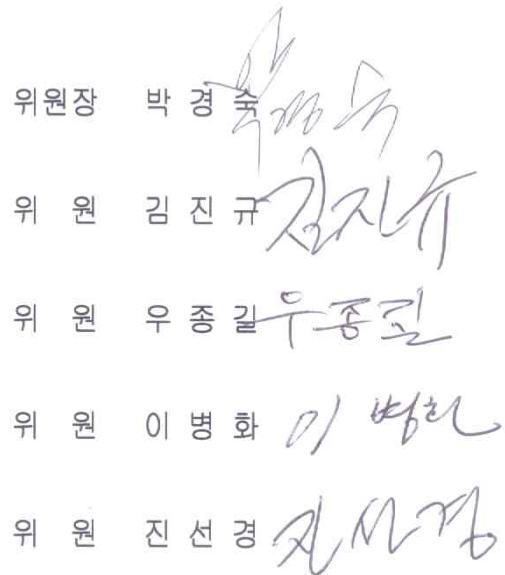 위원장 박경숙 박경숙
위 원 김진규 김진규
위 원 우종길 우종길
위 원 이병화 이병화
위 원 진선경 진선경